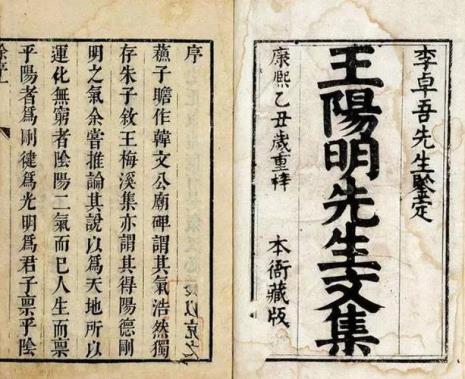 李卓吾先生鑒定
王陽明先生文集
康熙乙丑歲重梓
本衙藏版
序
蘇子瞻作韓文公廟碑謂其氣浩然獨
存朱子敘王梅溪集亦謂其得陽德剛
明之氣余嘗推論其說以爲天地所以
運化無窮者陰陽二氣而已人生而稟
乎陽者爲剛健爲光明爲君子稟乎陰